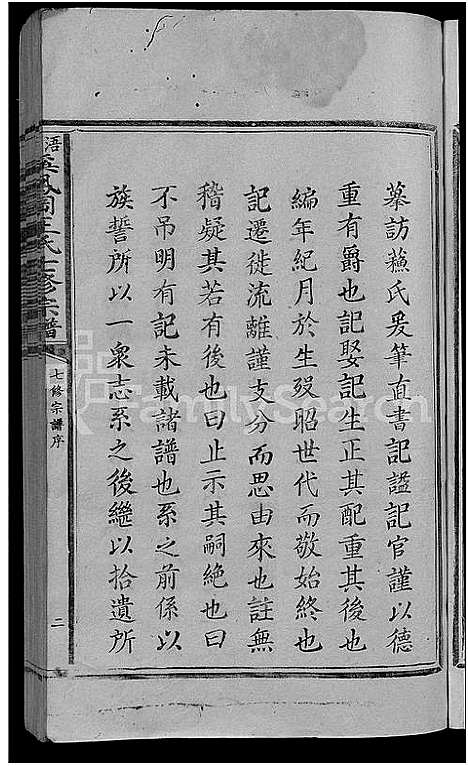 摹訪蘓氏爰筆直書記謚記官謹以德
重有爵也記娶記生正其配重其後也
編年紀月於生歿昭世代而敬始終也
記遷徙流離謹支分而思由來也註無
稽疑其若有後也曰止示其嗣絶也曰
不吊明有記未載諸譜也系之前係以
族誓所以一衆志系之後繼以拾遺所
氏七修宗譜
七修宗譜序
二
FamilySearch